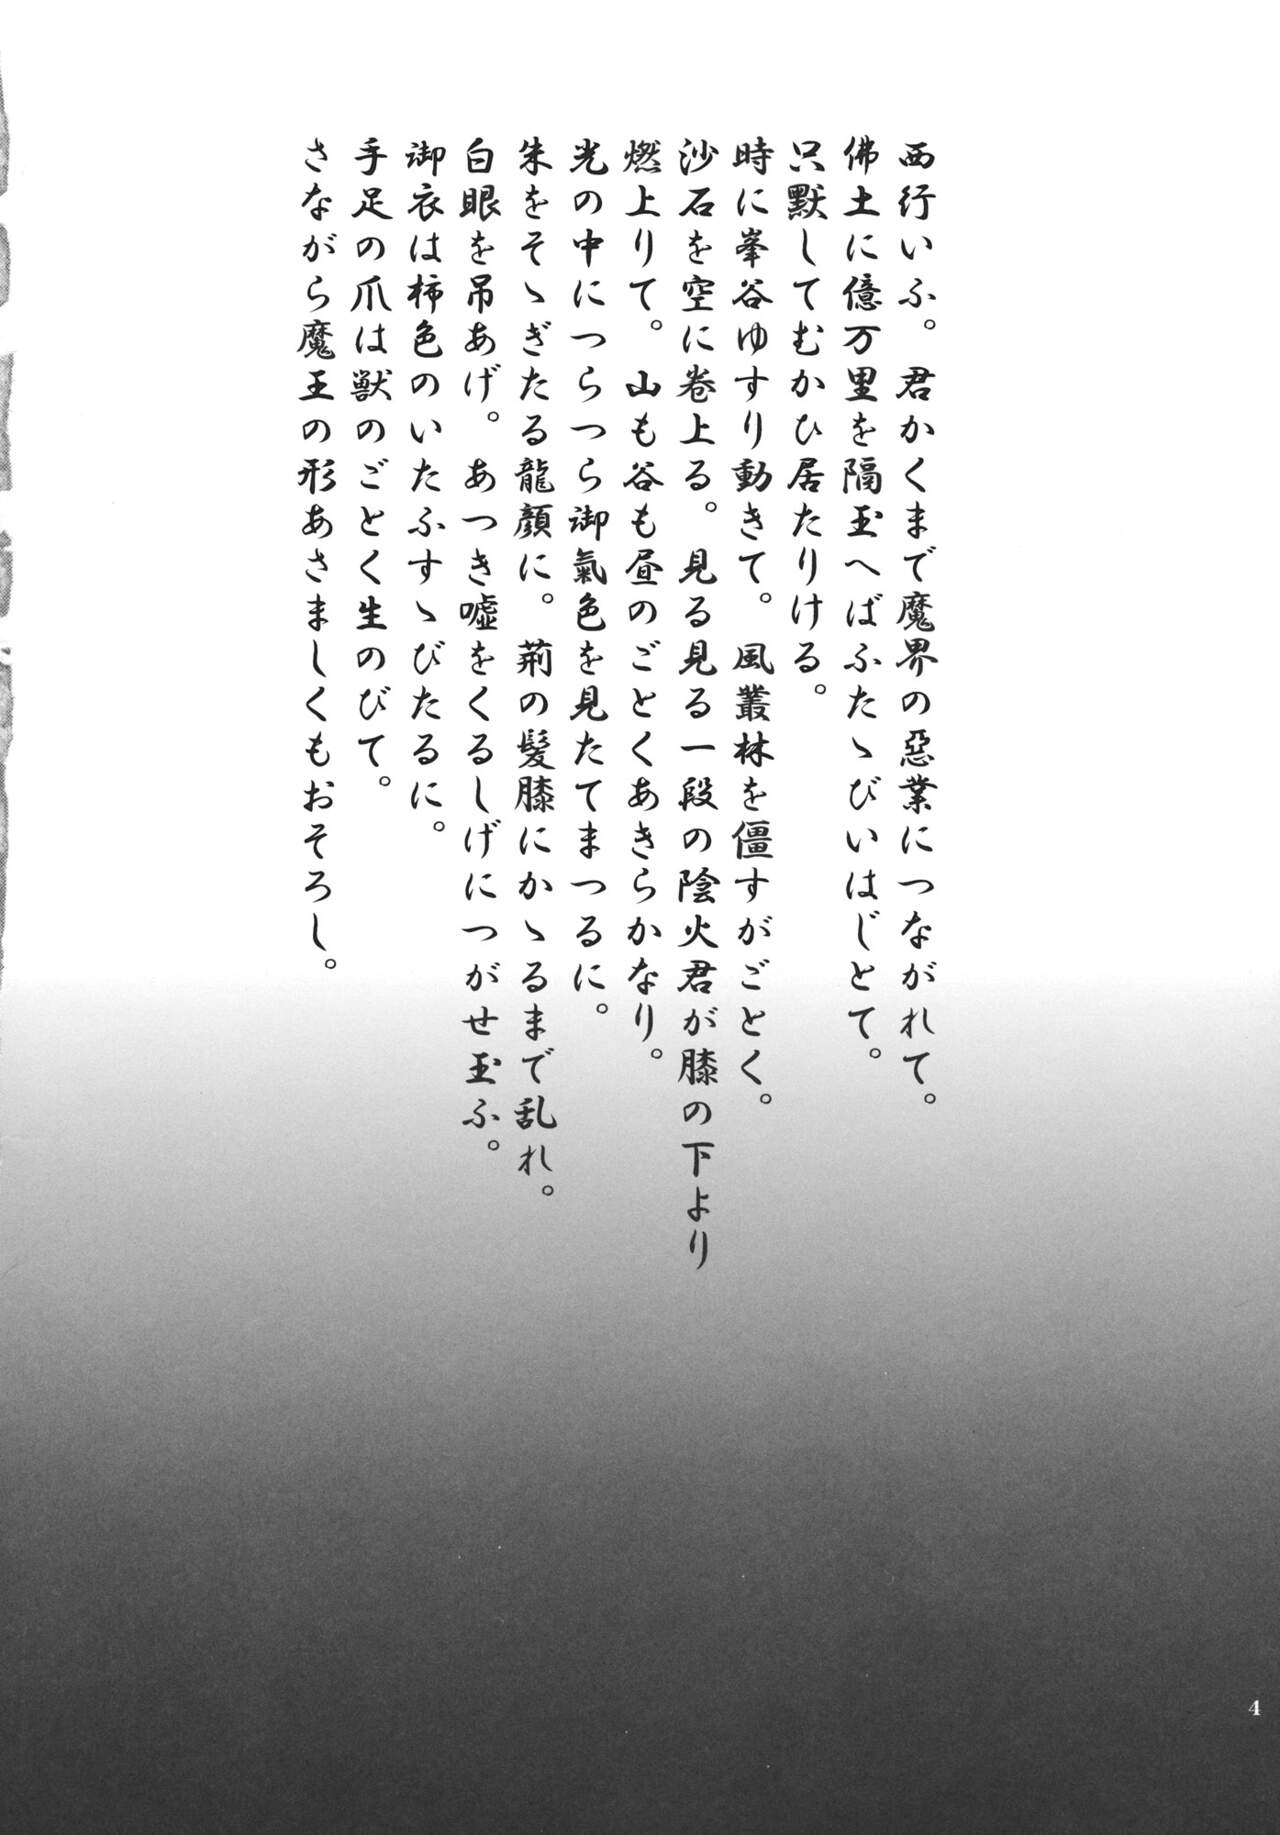 西行いふ。君かくまで魔界の惡業につながれて。
佛土に億万里を隔玉へばふたゝびいはじとて。
只默してむかひ居たりける。
時に峯谷ゆすり動きて。風叢林を僵すがごとく。
沙石を空に卷上る。見る見る一段の陰火君が膝の下より
燃上りて。山も谷も昼のごとくあきらかなり。
光の中につらつら御氣色を見たてまつるに。
朱をそゝぎたる龍顔に。荊の髪膝にかゝるまで乱れ。
白眼を吊あげ。あつき嘘をくるしげにつがせ玉ふ。
御衣は柿色のいたふすゝびたるに。
手足の爪は獣のごとく生のびて。
さながら魔王の形あさましくもおそろし。
4